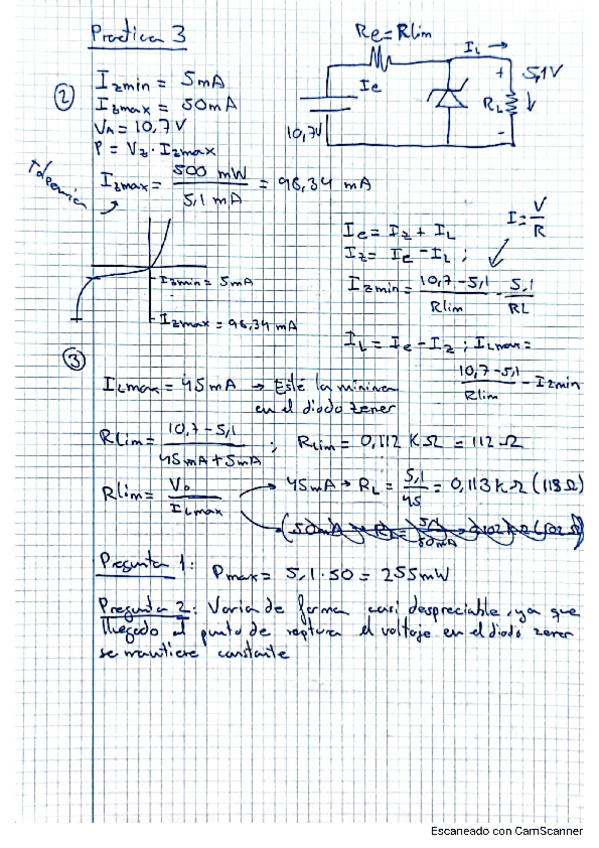 Practica 3
Re=Rlim
IL →
Ie
+
5,1V
RL
10,7V
-
②
Izmin = 5mA
Izmax = 50mA
VA = 10,7V
P = Vz · Izmax
Izmax = 500 mW / 5,1 mA = 98,34 mA
Izmin = 5mA
Izmax = 98,34 mA
Ie = Iz + IL
I = V / R
Iz = Ie - IL ;
Izmin = 10,7-5,1 / Rlim - 5,1 / RL
IL = Ie - Iz ; ILmax =
10,7-5,1 / Rlim - Izmin
③
ILmax = 45mA → Esté la mínima
en el diodo zener
Rlim = 10,7-5,1 / 45mA+5mA ; Rlim = 0,112 KΩ = 112 Ω
Rlim = Vo / ILmax
45mA → RL = 5,1 / 45 = 0,113kΩ (113Ω)
Pregunta 1: Pmax = 5,1·50 = 255mW
Pregunta 2: Varia de forma casi despreciable, ya que
llegado al punto de ruptura el voltaje en el diodo zener
se mantiene constante
Escaneado con CamScanner